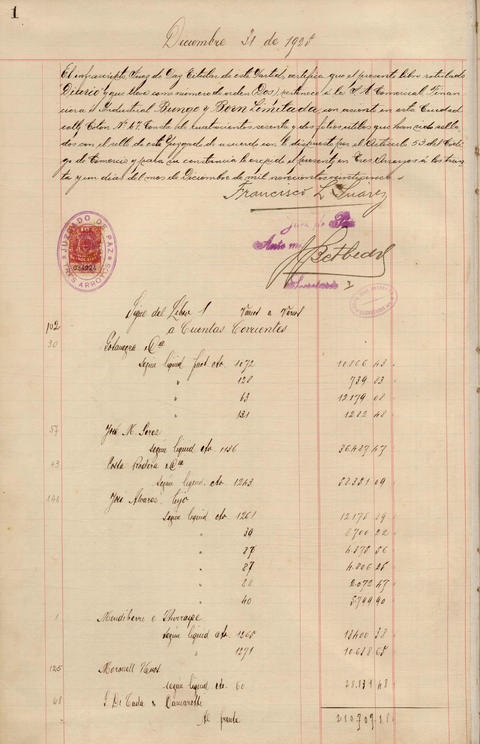 1
Diciembre 31 de 1925
El infrascripto Juez de Paz Titular de este Partido, certifica que el presente libro rotulado
Diario y que lleva como número de orden (Dos), pertenece a la S.A. Comercial Finan
ciera é Industrial Bunge y Born Limitada con asiento en esta Ciudad
calle Colon Nº 47. Consta de cuatrocientos noventa y dos folios útiles que han sido sella
dos con el sello de este Juzgado de acuerdo con lo dispuesto por el Artículo 53 del Códi
go de Comercio y para su constancia le expido el presente en Tres Arroyos á los treinta
y un días del mes de Diciembre de mil novecientos veinticinco
Francisco L. Suárez
Juez de Paz
JUZGADO DE PAZ
TRES ARROYOS
Ante mi
Secretario
Sigue del Libro 1 Varios a Varios
102 a Cuentas Corrientes
30
según liquid fact cto 1072 10.866 43
" 128 739 83
" 63 12.179 08
" 131 1282 48
57 José M. Perez
según liquid cto 1156 36.487 47
43 Costa
según liquid cto 1243
148 José Alvarez hijo
según liquid cto 1261 12.178 39
" 39 8700 22
" 27 4.878 86
" 87 4.806 26
" 28 2.072 47
" 40 5799 90
1 Mendiberre e
según liquid cto 1265 13400 33
" 1271 10.688 68
125
según liquid cto 60 28.131 48
68 J. Di
Al frente 210.709 18